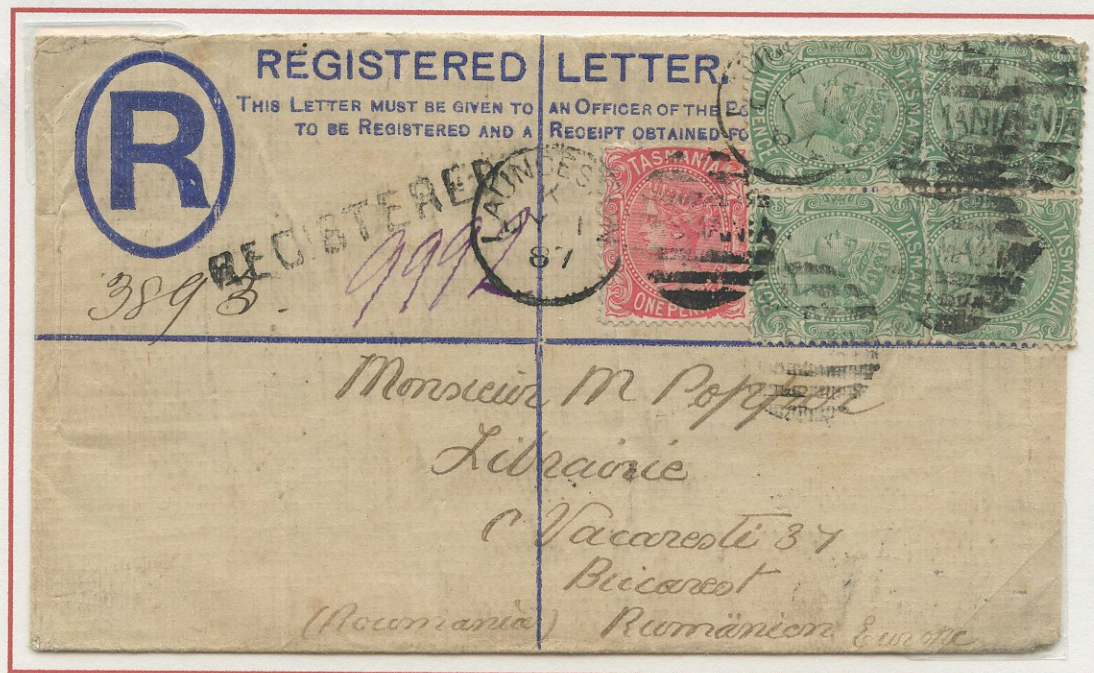 REGISTERED LETTER.
THIS LETTER MUST BE GIVEN TO AN OFFICER OF THE
TO BE REGISTERED AND A RECEIPT OBTAINED
R
REGISTERED
LAUNCESTON
87
TASMANIA
ONE PENNY
TASMANIA
TASMANIA
TASMANIA
3893.
9992
Monsieur M
Librairie
Vacaresti 37
Bucarest
(Roumania) Rumänien Europe